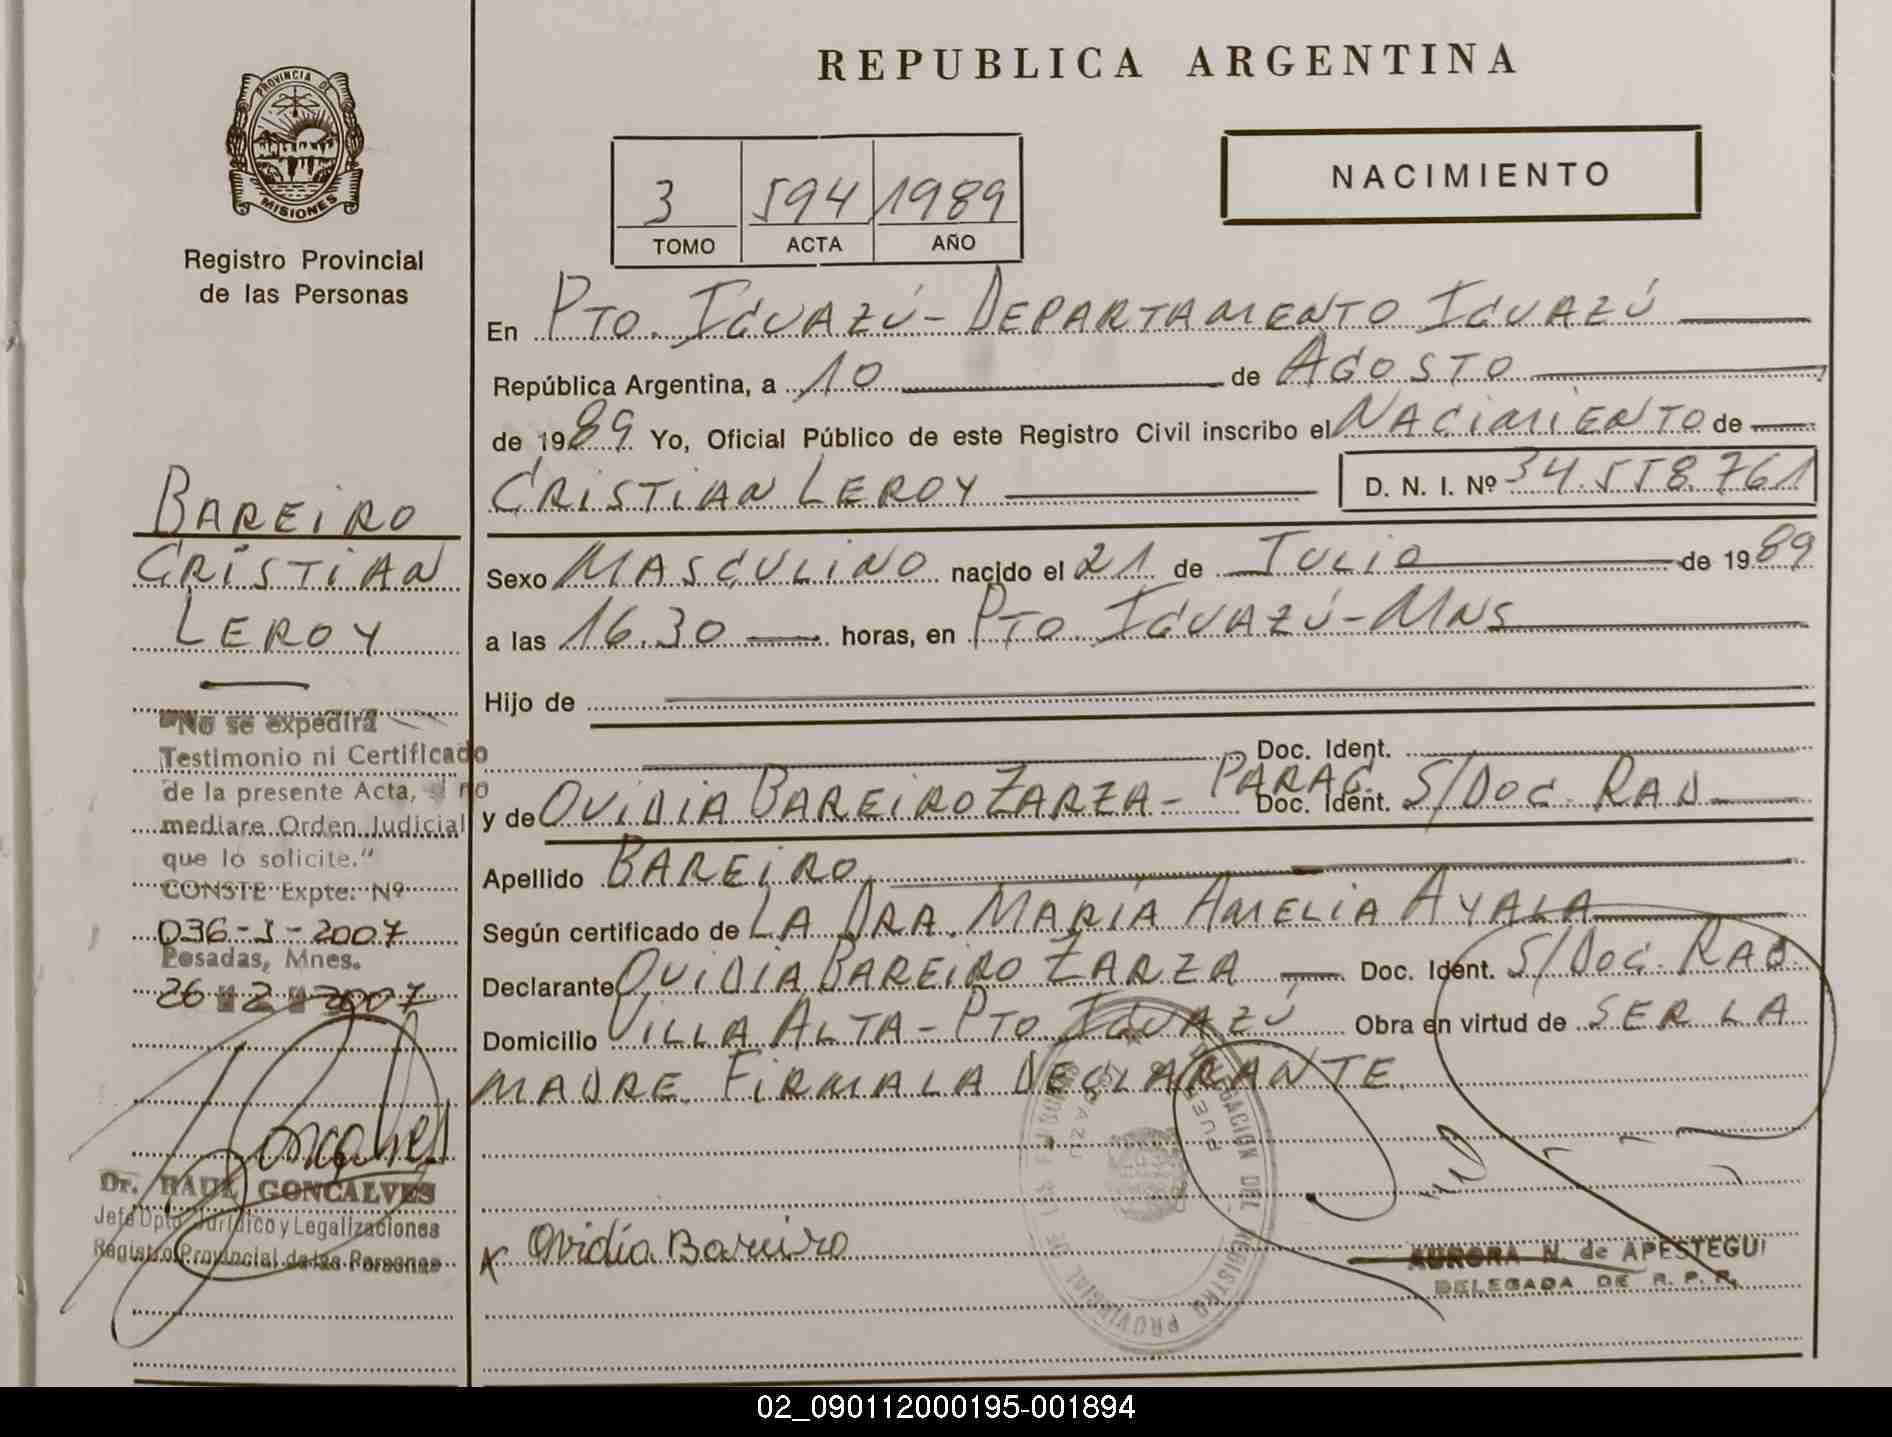 PROVINCIA DE
MISIONES
Registro Provincial
de las Personas
BAREIRO
CRISTIAN
LEROY
"No se expedirá
Testimonio ni Certificado
de la presente Acta, si no
mediare Orden Judicial
que lo solicite."
CONSTE Expte. Nº
036-J-2007
Posadas, Mnes.
26 2 2007
Dr. RAUL GONCALVES
Jefe Dpto. Jurídico y Legalizaciones
Registro Provincial de las Personas
REPUBLICA ARGENTINA
3 594 1989
TOMO ACTA AÑO
NACIMIENTO
En PTO. IGUAZÚ - DEPARTAMENTO IGUAZÚ
República Argentina, a 10 de AGOSTO
de 1989 Yo, Oficial Público de este Registro Civil inscribo el NACIMIENTO de
CRISTIAN LEROY D. N. I. Nº 34.558.761
Sexo MASCULINO nacido el 21 de JULIO de 1989
a las 16.30 horas, en PTO. IGUAZÚ - MNS
Hijo de
Doc. Ident.
y de OVIDIA BAREIRO ZARZA - PARAG. Doc. Ident. S/DOC. RAD
Apellido BAREIRO
Según certificado de LA DRA. MARÍA AMELIA AYALA
Declarante OVIDIA BAREIRO ZARZA Doc. Ident. S/DOC. RAD.
Domicilio VILLA ALTA - PTO IGUAZÚ Obra en virtud de SER LA
MADRE. FIRMA LA DECLARANTE.
X Ovidia Bareiro
AURORA N. de APESTEGUI
DELEGADA DE R. P. P.
02_090112000195-001894